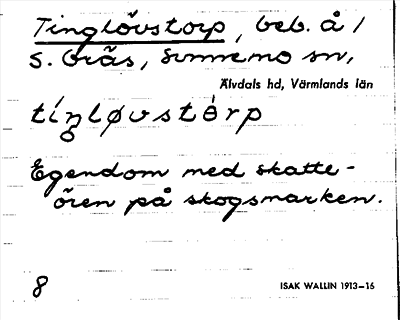 Tinglövstorp, beb. å 1
S. Gräs, Sunnemo sn,
Älvdals hd, Värmlands län
tíŋløvstòrp
Egendom med skatte-
ören på skogsmarken.
8
ISAK WALLIN 1913–16